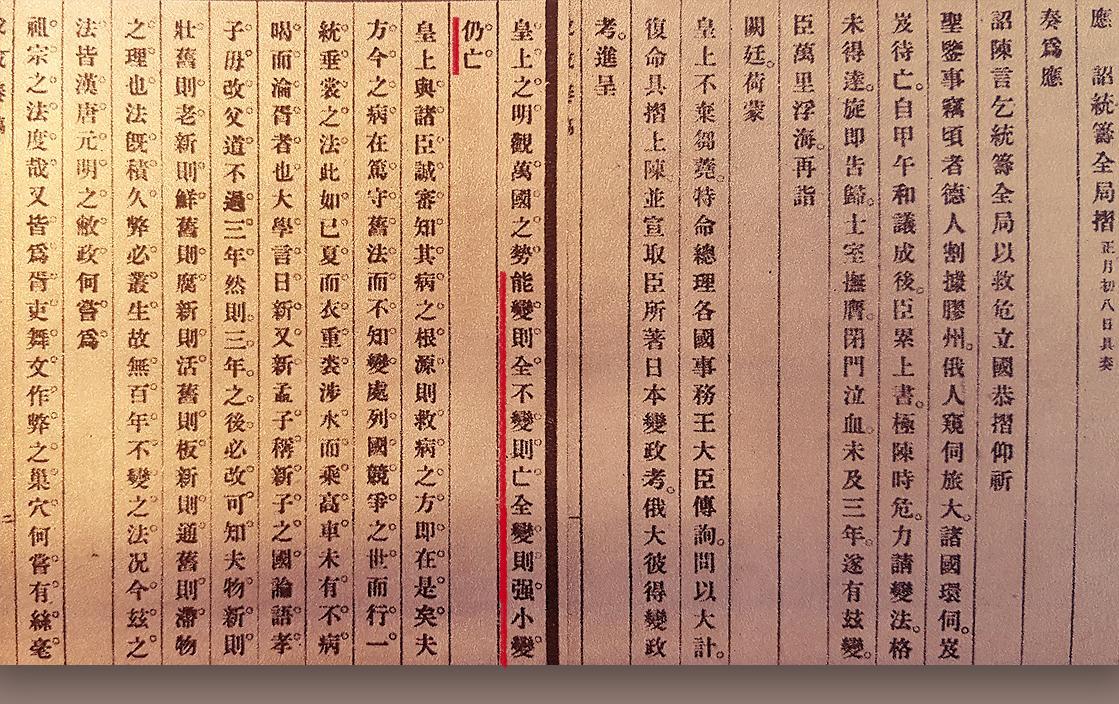 應　詔統籌全局摺正月初八日具奏
奏爲應
詔陳言乞統籌全局以救危立國恭摺仰祈
聖鑒事竊頃者德人割據膠州俄人窺伺旅大諸國環伺岌
岌待亡自甲午和議成後臣累上書極陳時危力請變法格
未得達旋即告歸土室撫膺閉門泣血未及三年遂有玆變
臣萬里浮海再詣
闕廷荷蒙
皇上不棄芻蕘特命總理各國事務王大臣傳詢問以大計
復命具摺上陳並宣取臣所著日本變政考俄大彼得變政
考進呈
皇上之明觀萬國之勢能變則全不變則亡全變則强小變
仍亡
皇上與諸臣誠審知其病之根源則救病之方即在是矣夫
方今之病在篤守舊法而不知變處列國競爭之世而行一
統垂裳之法此如已夏而衣重裘涉水而乘高車未有不病
暍而淪胥者也大學言日新又新孟子稱新子之國論語孝
子毋改父道不過三年然則三年之後必改可知夫物新則
壯舊則老新則鮮舊則腐新則活舊則板新則通舊則滯物
之理也法旣積久弊必叢生故無百年不變之法况今玆之
法皆漢唐元明之敝政何嘗爲
祖宗之法度哉又皆爲胥吏舞文作弊之巢穴何嘗有絲毫